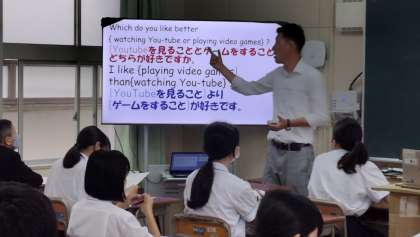 Which do you like better
{ watching You-tube or playing video games} ?
[Youtubeを見ることとゲームをすること
どちらが好きですか。
I like {playing video gam
than{watching You-tube}
[YouTubeを見ること]より
[ゲームをすること]が好きです。